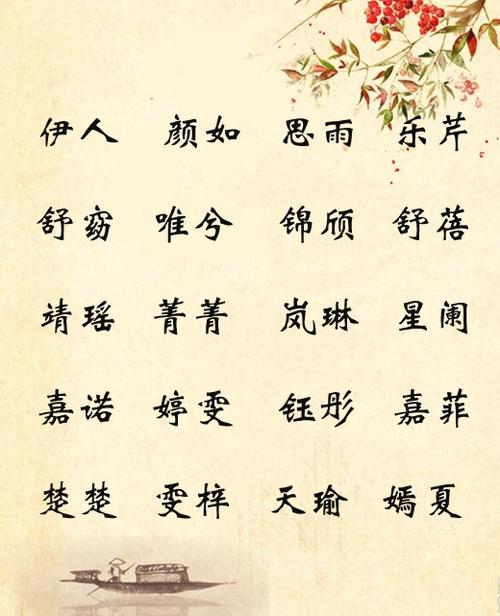 伊人 颜如 思雨 乐芹
舒窈 唯兮 锦颀 舒蓓
靖瑶 菁菁 岚琳 星阑
嘉诺 婷雯 钰彤 嘉菲
楚楚 雯梓 天瑜 嫣夏